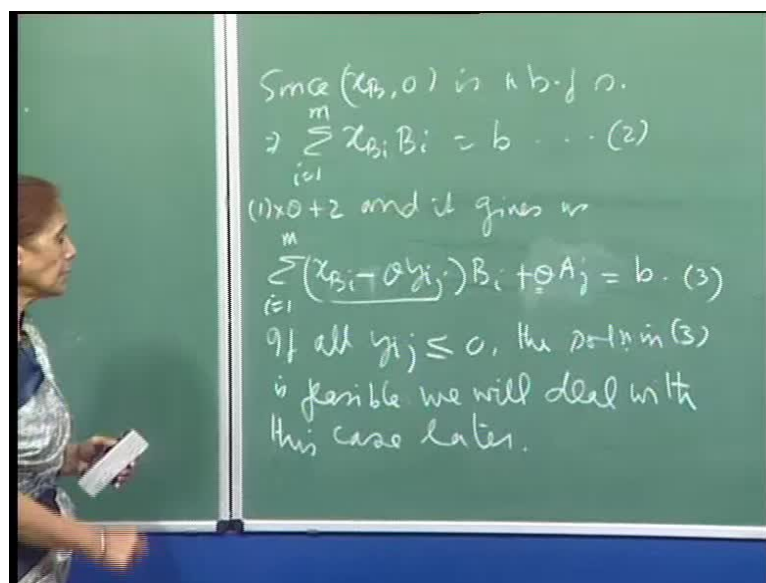 Since (x_B, 0) is a b.f.s.
⇒ \sum_{i=1}^{m} x_{B_i} B_i = b . . . (2)
(1)×θ + 2 and it gives us
\sum_{i=1}^{m} (x_{B_i} - θ y_{ij}) B_i + θ A_j = b . (3)
If all y_{ij} ≤ 0, the soln in (3)
is feasible we will deal with
this case later.